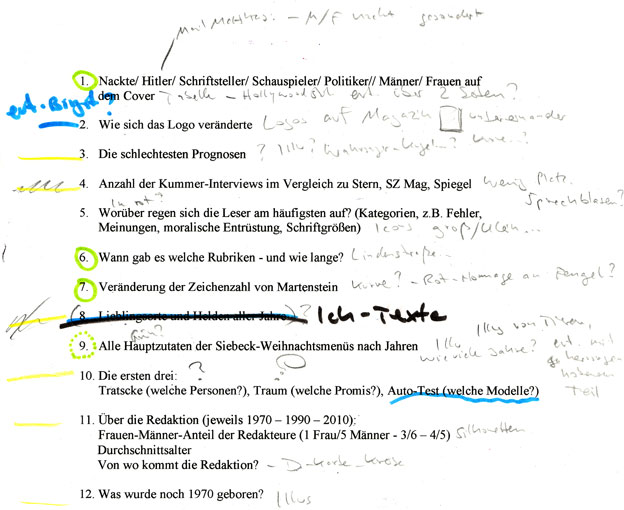 Mail Matthias: - M/F nicht gesondert
1. Nackte/ Hitler/ Schriftsteller/ Schauspieler/ Politiker// Männer/ Frauen auf
dem Cover Tabelle - evt. über 2 Seiten?
evt. Bigst.?
2. Wie sich das Logo veränderte Logos auf Magazin untereinander
3. Die schlechtesten Prognosen ? Illu? Wahrsager-kugeln?
4. Anzahl der Kummer-Interviews im Vergleich zu Stern, SZ Mag, Spiegel wenig Platz.
Sprechblasen?
in rot?
5. Worüber regen sich die Leser am häufigsten auf? (Kategorien, z.B. Fehler,
Meinungen, moralische Entrüstung, Schriftgrößen) Icons groß/klein...
6. Wann gab es welche Rubriken - und wie lange? Lindenstraße...
7. Veränderung der Zeichenzahl von Martenstein Kurve? - Rot-Hommage an Fengel?
(8. Lieblingsorte und Helden aller Jahre)? Ich-Texte
grün?
9. Alle Hauptzutaten der Siebeck-Weihnachtsmenüs nach Jahren Illu wie viele Jahre?
Illus von Tieren, evt. mit
hervorgehobenem
Teil
10. Die ersten drei: ? ?
Tratscke (welche Personen?), Traum (welche Promis?), Auto-Test (welche Modelle?)
11. Über die Redaktion (jeweils 1970 – 1990 – 2010):
Frauen-Männer-Anteil der Redakteure (1 Frau/5 Männer - 3/6 – 4/5) Silhouetten
Durchschnittsalter
Von wo kommt die Redaktion? - D-Karte-
12. Was wurde noch 1970 geboren? Illus